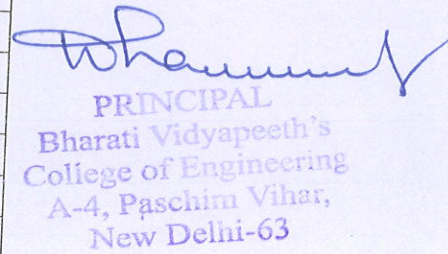 PRINCIPAL
Bharati Vidyapeeth's
College of Engineering
A-4, Paschim Vihar,
New Delhi-63